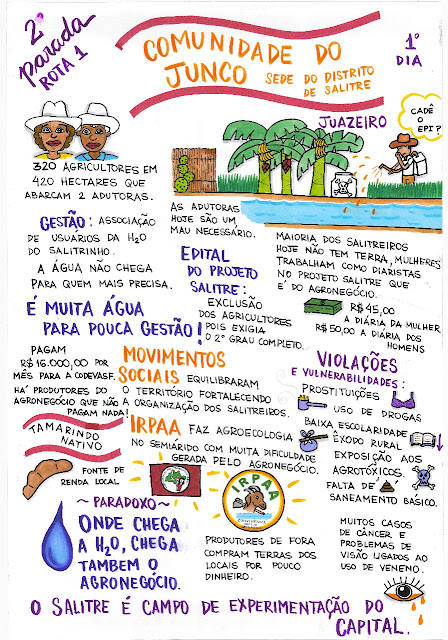 2ª parada
ROTA 1
COMUNIDADE DO
JUNCO SEDE DO DISTRITO
DE SALITRE
1º
DIA
CADÊ
EPI?
JUAZEIRO
320 AGRICULTORES EM
420 HECTARES QUE
ABARCAM 2 ADUTORAS.
GESTÃO: ASSOCIAÇÃO
DE USUÁRIOS DA H2O
DO SALITRINHO.
A ÁGUA NÃO CHEGA
PARA QUEM MAIS PRECISA.
É MUITA ÁGUA
PARA POUCA GESTÃO!
PAGAM
R$ 16.000,00 POR
MÊS PARA A CODEVASF.
HÁ PRODUTORES DO
AGRONEGÓCIO QUE NÃO
PAGAM NADA!
AS ADUTORAS
HOJE SÃO UM
MAU NECESSÁRIO.
EDITAL
DO PROJETO
SALITRE:
EXCLUSÃO
DOS AGRICULTORES
POIS EXIGIA
O 2º GRAU COMPLETO.
MAIORIA DOS SALITREIROS
HOJE NÃO TEM TERRA, MULHERES
TRABALHAM COMO DIARISTAS
NO PROJETO SALITRE QUE
É DO AGRONEGÓCIO.
R$45,00
A DIÁRIA DA MULHER
R$50,00 A DIÁRIA DOS
HOMENS
MOVIMENTOS
SOCIAIS EQUILIBRARAM
O TERRITÓRIO FORTALECENDO
A ORGANIZAÇÃO DOS SALITREIROS.
VIOLAÇÕES
E VULNERABILIDADES:
PROSTITUIÇÕES
USO DE DROGAS
BAIXA ESCOLARIDADE
ÊXODO RURAL
EXPOSIÇÃO AOS
AGROTÓXICOS.
FALTA DE
SANEAMENTO BÁSICO.
TAMARINDO
NATIVO
FONTE DE
RENDA LOCAL
IRPAA FAZ AGROECOLOGIA
NO SEMIÁRIDO COM MUITA DIFICULDADE
GERADA PELO AGRONEGÓCIO.
IRPAA
~ PARADOXO ~
ONDE CHEGA
A H2O, CHEGA
TAMBEM O
AGRONEGÓCIO.
PRODUTORES DE FORA
COMPRAM TERRAS DOS
LOCAIS POR POUCO
DINHEIRO.
MUITOS CASOS
DE CÂNCER E
PROBLEMAS DE
VISÃO LIGADOS AO
USO DE VENENO.
O SALITRE É CAMPO DE EXPERIMENTAÇÃO DO
CAPITAL.